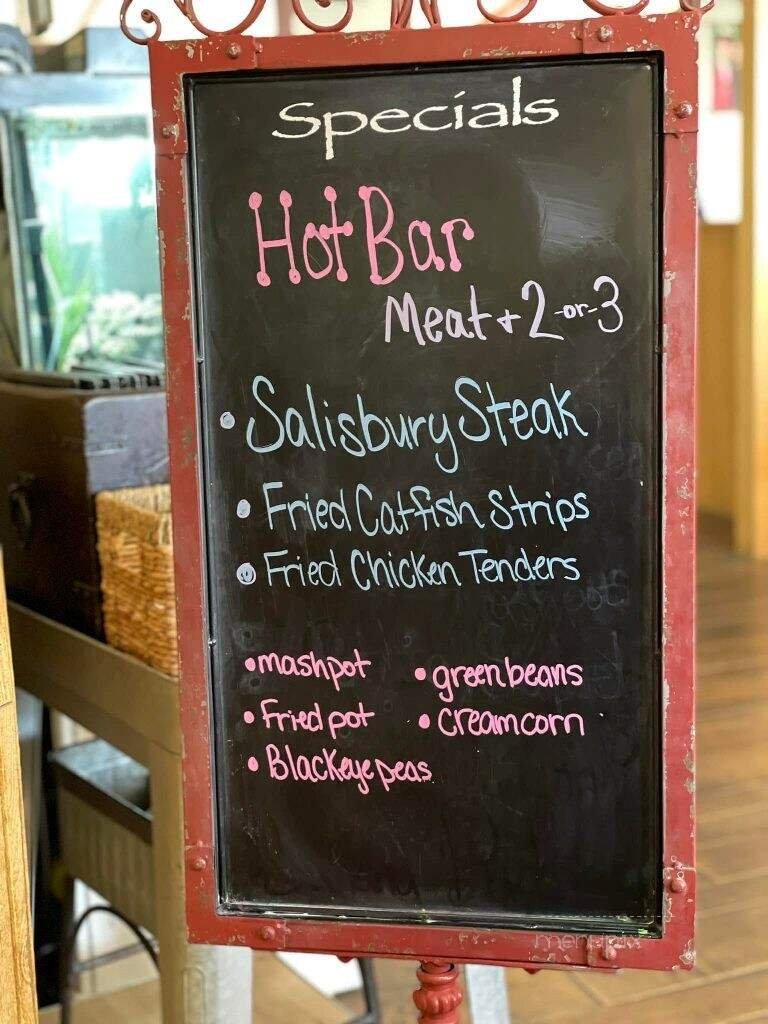 Specials
Hot Bar
Meat + 2 -or- 3
• Salisbury Steak
• Fried Catfish Strips
• Fried Chicken Tenders
• mashpot • green beans
• Fried pot • cream corn
• Blackeye peas